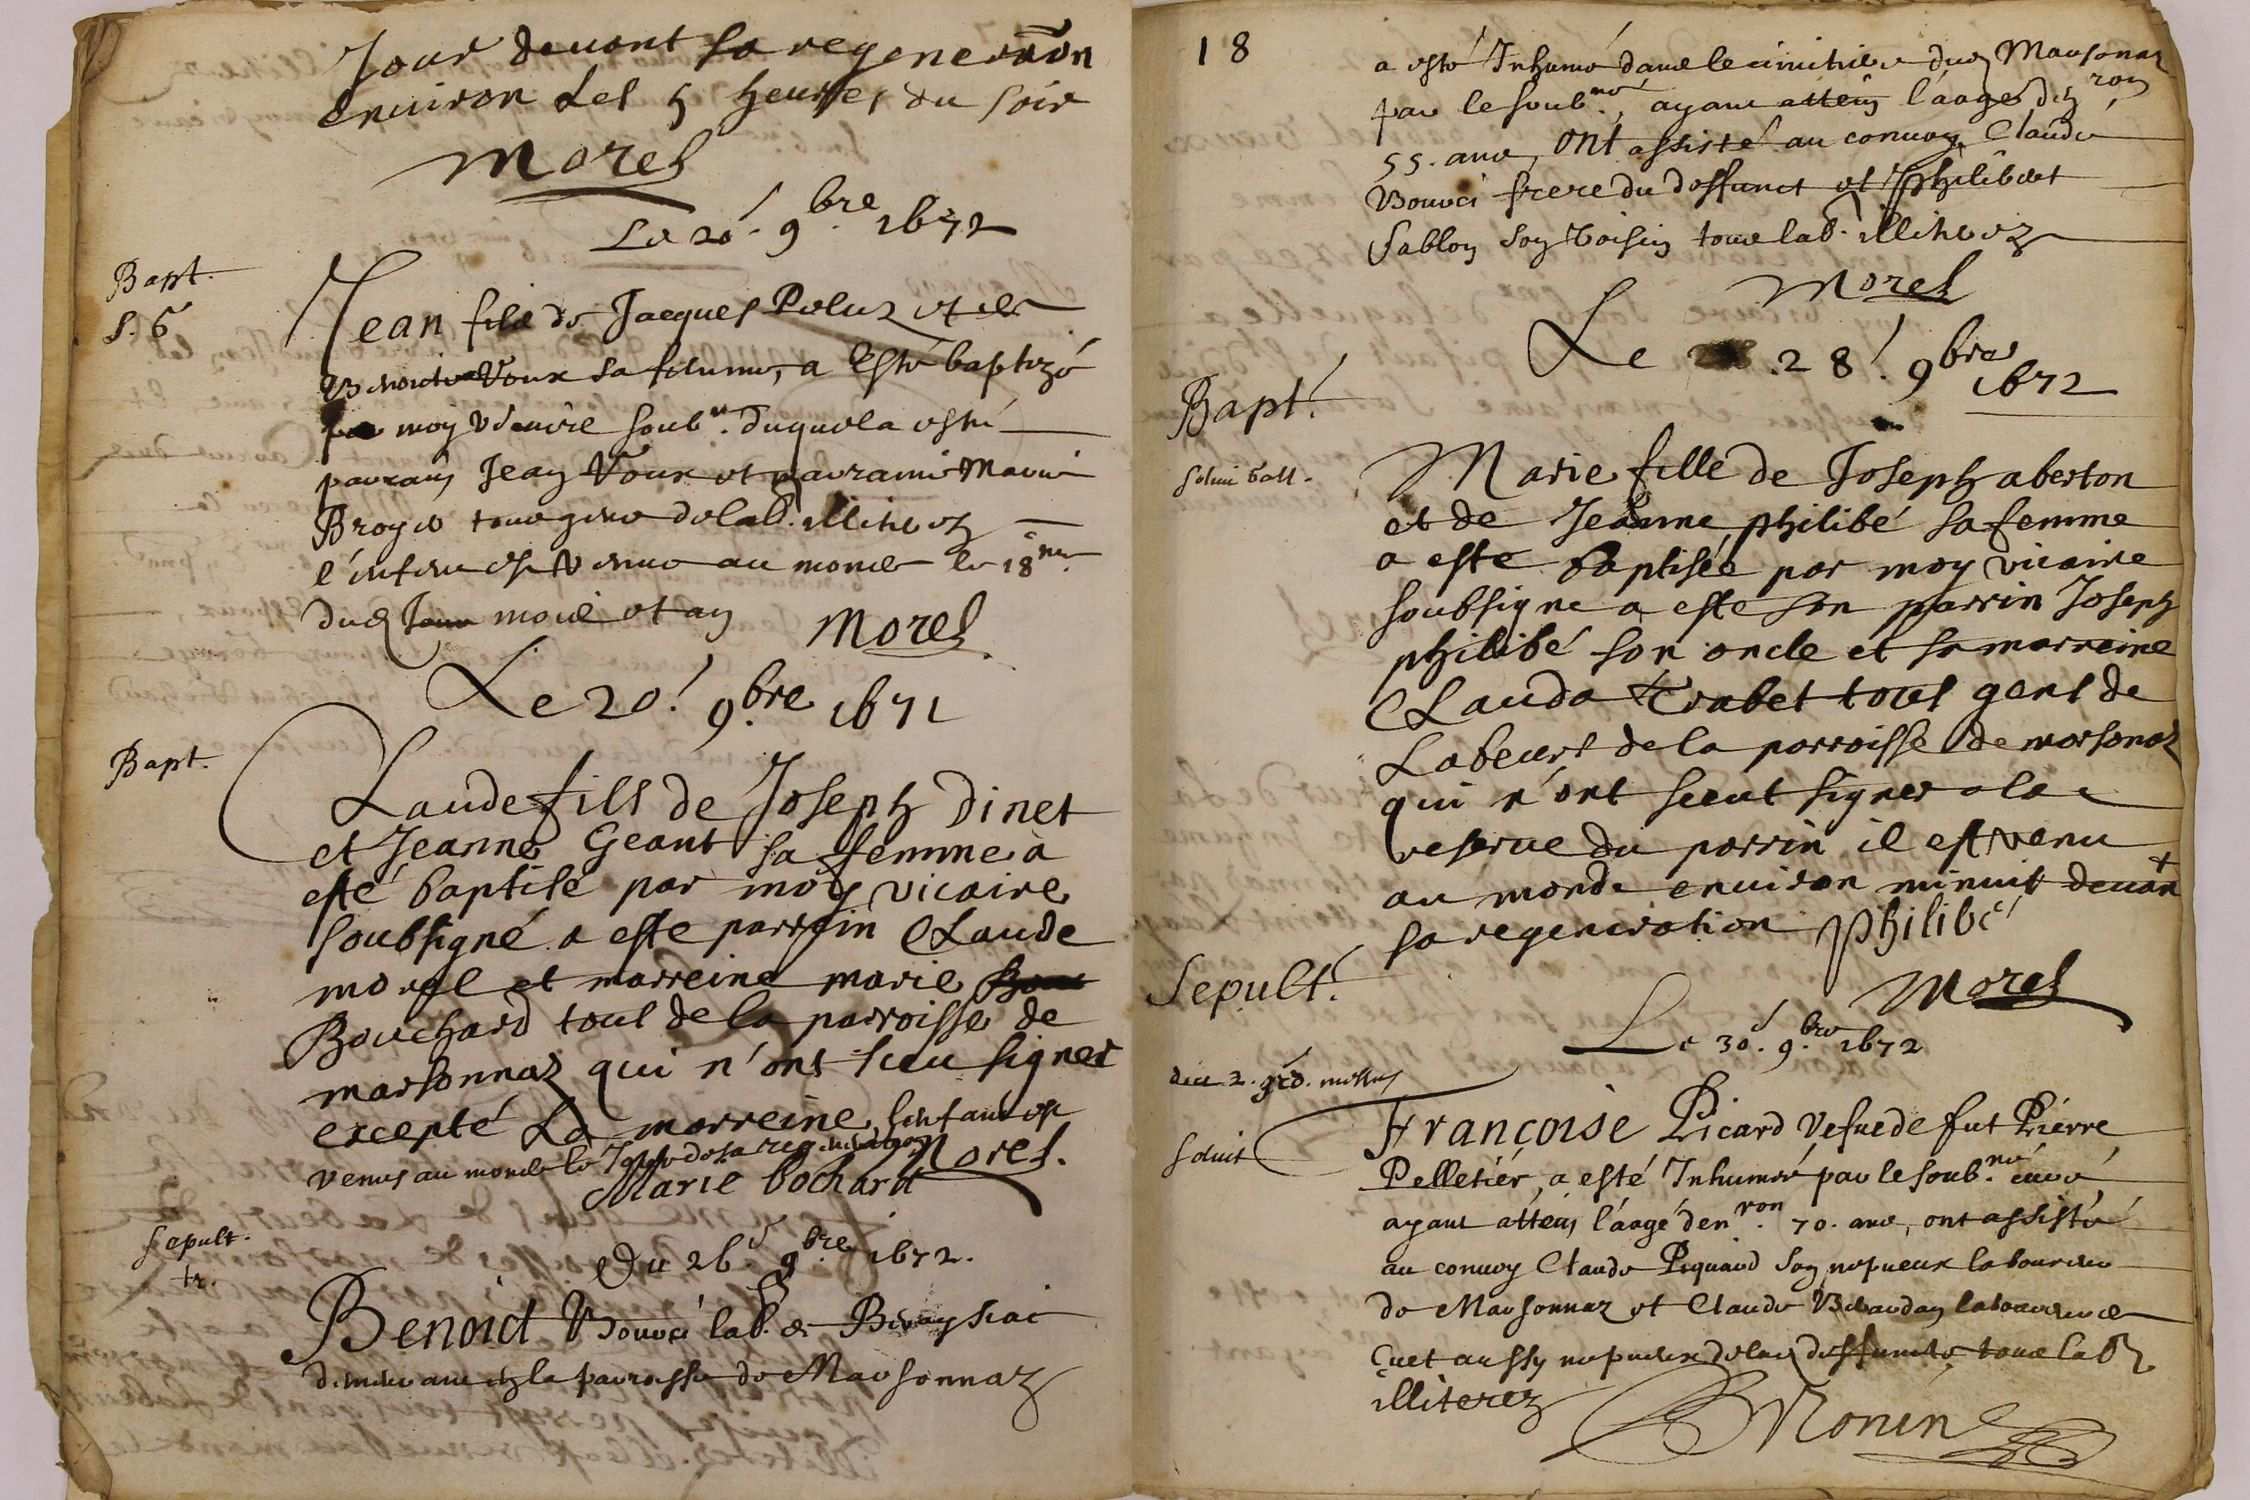 Jour devant sa regeneraōn
environ les 5 heures du soir
Morel
Le 20.ͤ 9.bre 1672
Bapt.
s. 6
Jean fils de Jacques Poluz et de
Benoite Voux sa femme, a esté baptizé
par moy vicaire soub.né duquel a esté
parrain Jean Voux et marraine Marie
Broye tous gens de lab. illiterez
l'enfant est venu au monde le 18.me
dud mois et an
Morel
Le 20.ͤ 9.bre 1671
Bapt.
Claude fils de Joseph Dinet
et Jeanne Geant sa femme à
esté baptisé par moy vicaire
soubsigné a esté parrain Claude
morel et marreine marie
Bouchard tous de la parroisse de
marsonnaz qui n'ont sceu signer
excepté La marreine, l'enfant est
venus au monde le Jour de sa regeneration
Morel.
Marie bochard
Sepult.
tr.
Du 26.ͤ 9.bre 1672.
Benoict Bouvci lab. de
demeurant en la parroisse de Marsonnaz
18
a esté Inhumé dans le cimitiere dud Marsonnaz
par le soub.né, ayant attein l'aage d'environ
55. ans, ont assisté au convoy Claude
Bouvci frere du deffunct et Philibert
Sablon son voisin tous lab. illiterez
Morel
Le 28.ͤ 9.bre
1672
Bapt.
solui
Marie fille de Joseph aberton
et de Jeanne philibé sa femme
a esté baptisée par moy vicaire
soubsigne a este son parrin Joseph
philibé son oncle et sa marreine
Clauda trabet tous gens de
Labeurs de la parroisse de marsonaz
qui n'ont sceut signer a la
reserve du parrin il est venu
au monde environ minuit devant
sa regeneration
Philibé
Morel
Sepult.
Le 30.ͤ 9.bre 1672
2. missus
soluit
Françoise Picard Vefue de fut Pierre
Pelletiér, a esté Inhumée par le soub.né curé
ayant attein l'aagé d'environ 70. ans, ont assisté
au convoy Claude Piquard son nepueux laboureur
de Marsonnaz et Claude laboureur de
Cuet aussy nepueux de lad deffuncte tous lab.
illiterez
Monin